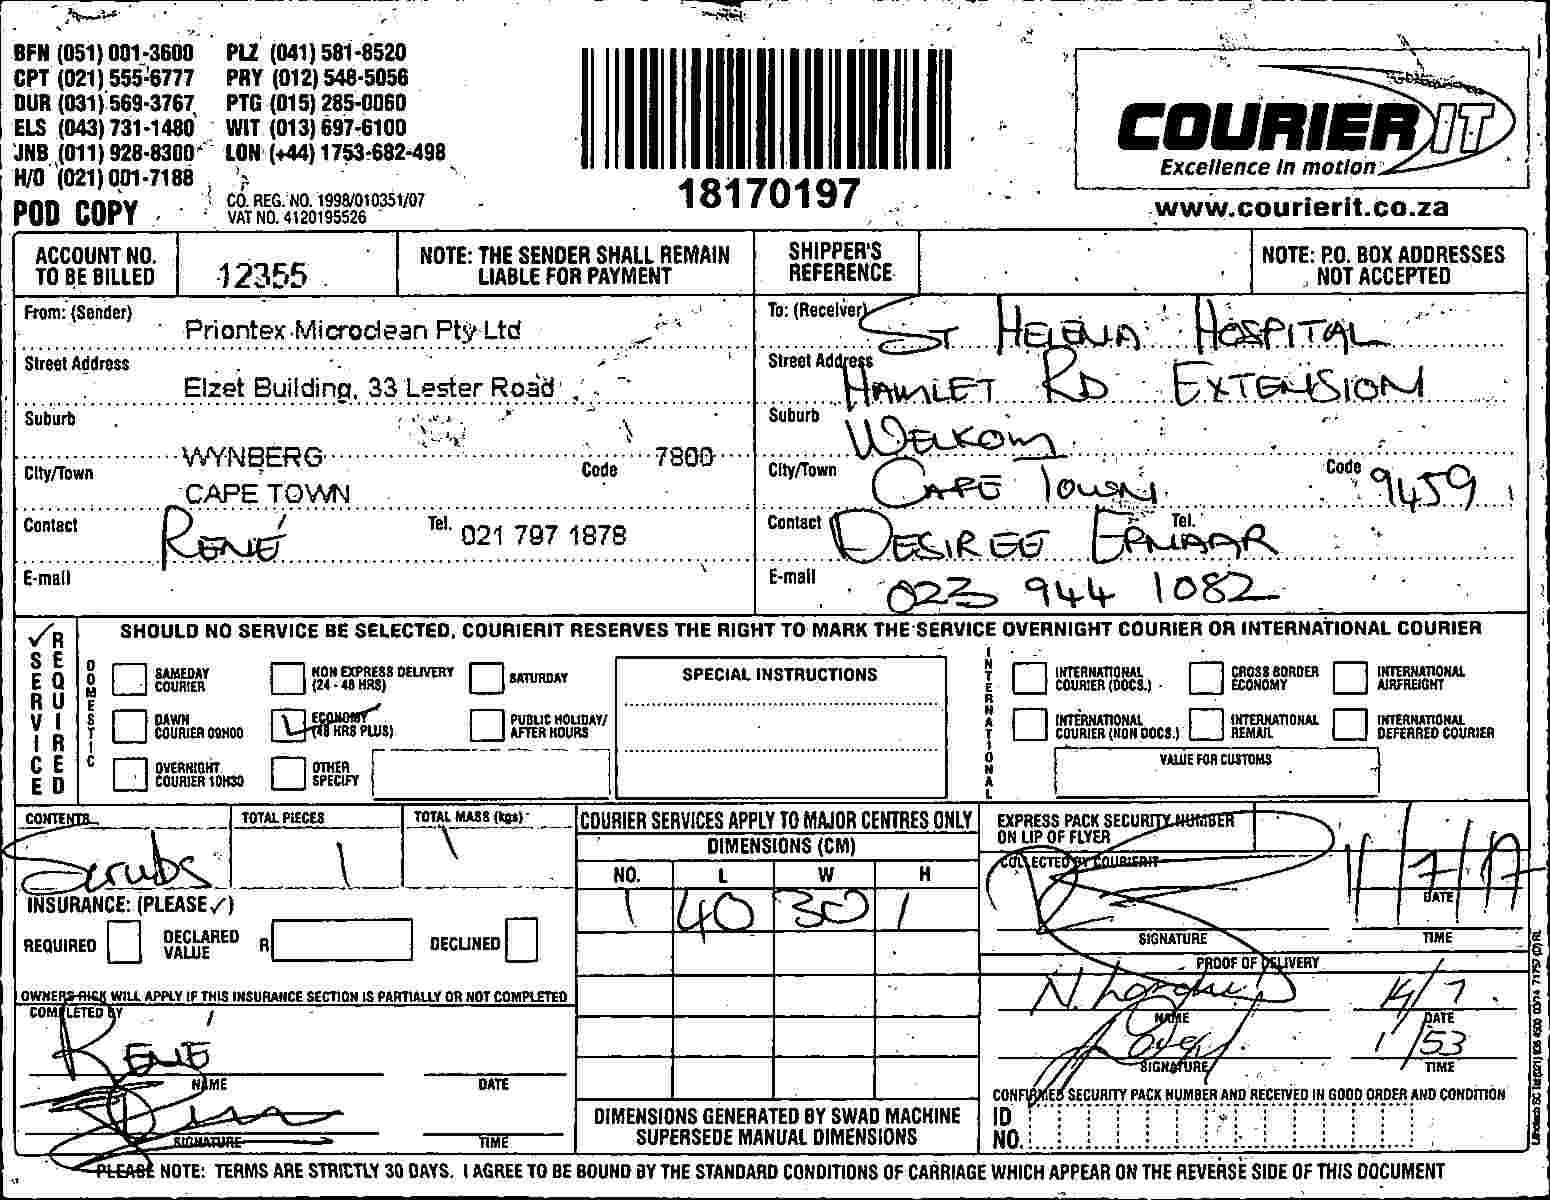 BFN (051) 001-3600 PLZ (041) 581-8520
CPT (021) 555-6777 PRY (012) 548-5056
DUR (031) 569-3767 PTG (015) 285-0060
ELS (043) 731-1480 WIT (013) 697-6100
JNB (011) 928-8300 LON (+44) 1753-682-498
H/O (021) 001-7188
POD COPY
CO. REG. NO. 1998/010351/07
VAT NO. 4120195526
18170197
COURIER IT
Excellence in motion
www.courierit.co.za
ACCOUNT NO. TO BE BILLED 12355
NOTE: THE SENDER SHALL REMAIN LIABLE FOR PAYMENT
SHIPPER'S REFERENCE
NOTE: P.O. BOX ADDRESSES NOT ACCEPTED
From: (Sender) Priontex Microclean Pty Ltd
Street Address Elzet Building, 33 Lester Road
Suburb WYNBERG
City/Town CAPE TOWN Code 7800
Contact RENÉ Tel. 021 797 1878
E-mail
To: (Receiver) ST HELENA HOSPITAL
Street Address HAMLET RD EXTENSION
Suburb WELKOM
City/Town CAPE TOWN Code 9459
Contact DESIREE Tel.
E-mail 023 944 1082
SERVICE REQUIRED
SHOULD NO SERVICE BE SELECTED, COURIERIT RESERVES THE RIGHT TO MARK THE SERVICE OVERNIGHT COURIER OR INTERNATIONAL COURIER
DOMESTIC
SAMEDAY COURIER
NON EXPRESS DELIVERY (24 - 48 HRS)
SATURDAY
DAWN COURIER 09H00
ECONOMY (48 HRS PLUS)
PUBLIC HOLIDAY/ AFTER HOURS
OVERNIGHT COURIER 10H30
OTHER SPECIFY
SPECIAL INSTRUCTIONS
INTERNATIONAL
INTERNATIONAL COURIER (DOCS.)
CROSS BORDER ECONOMY
INTERNATIONAL AIRFREIGHT
INTERNATIONAL COURIER (NON DOCS.)
INTERNATIONAL REMAIL
INTERNATIONAL DEFERRED COURIER
VALUE FOR CUSTOMS
CONTENTS Scrubs
TOTAL PIECES 1
TOTAL MASS (kgs) 1
INSURANCE: (PLEASE ✓)
REQUIRED
DECLARED VALUE R
DECLINED
OWNERS RISK WILL APPLY IF THIS INSURANCE SECTION IS PARTIALLY OR NOT COMPLETED
COMPLETED BY
RENÉ
NAME DATE
SIGNATURE TIME
COURIER SERVICES APPLY TO MAJOR CENTRES ONLY
DIMENSIONS (CM)
NO. L W H
1 40 30 1
DIMENSIONS GENERATED BY SWAD MACHINE SUPERSEDE MANUAL DIMENSIONS
EXPRESS PACK SECURITY NUMBER ON LIP OF FLYER
COLLECTED BY COURIERIT
11/7/17
DATE
SIGNATURE TIME
PROOF OF DELIVERY
14/7
NAME DATE
1/53
SIGNATURE TIME
CONFIRMED SECURITY PACK NUMBER AND RECEIVED IN GOOD ORDER AND CONDITION
ID NO.
PLEASE NOTE: TERMS ARE STRICTLY 30 DAYS. I AGREE TO BE BOUND BY THE STANDARD CONDITIONS OF CARRIAGE WHICH APPEAR ON THE REVERSE SIDE OF THIS DOCUMENT